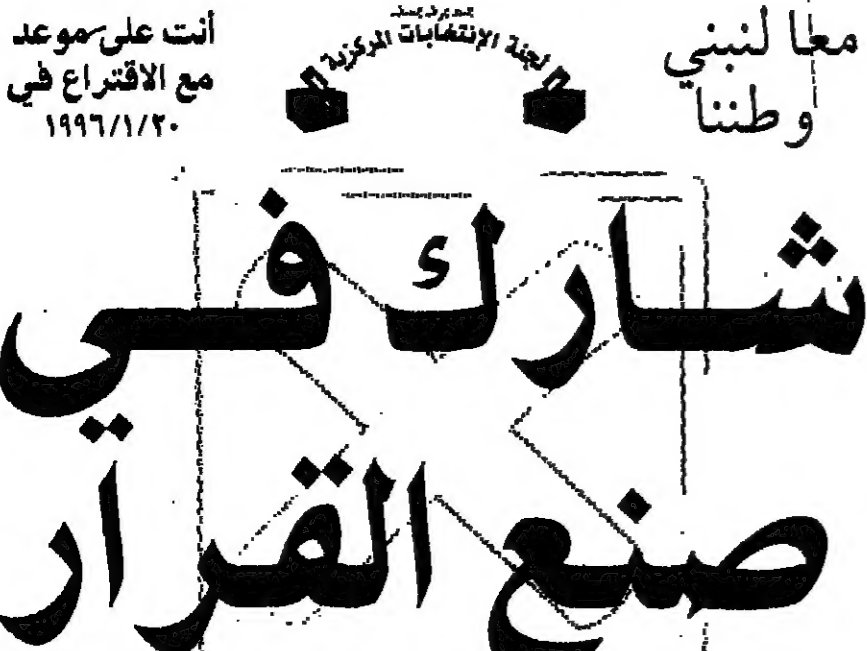 معا لنبني
وطننا
لجنة الإنتخابات المركزية
أنت على موعد
مع الاقتراع في
١٩٩٦/١/٢٠
شارك في
صنع القرار